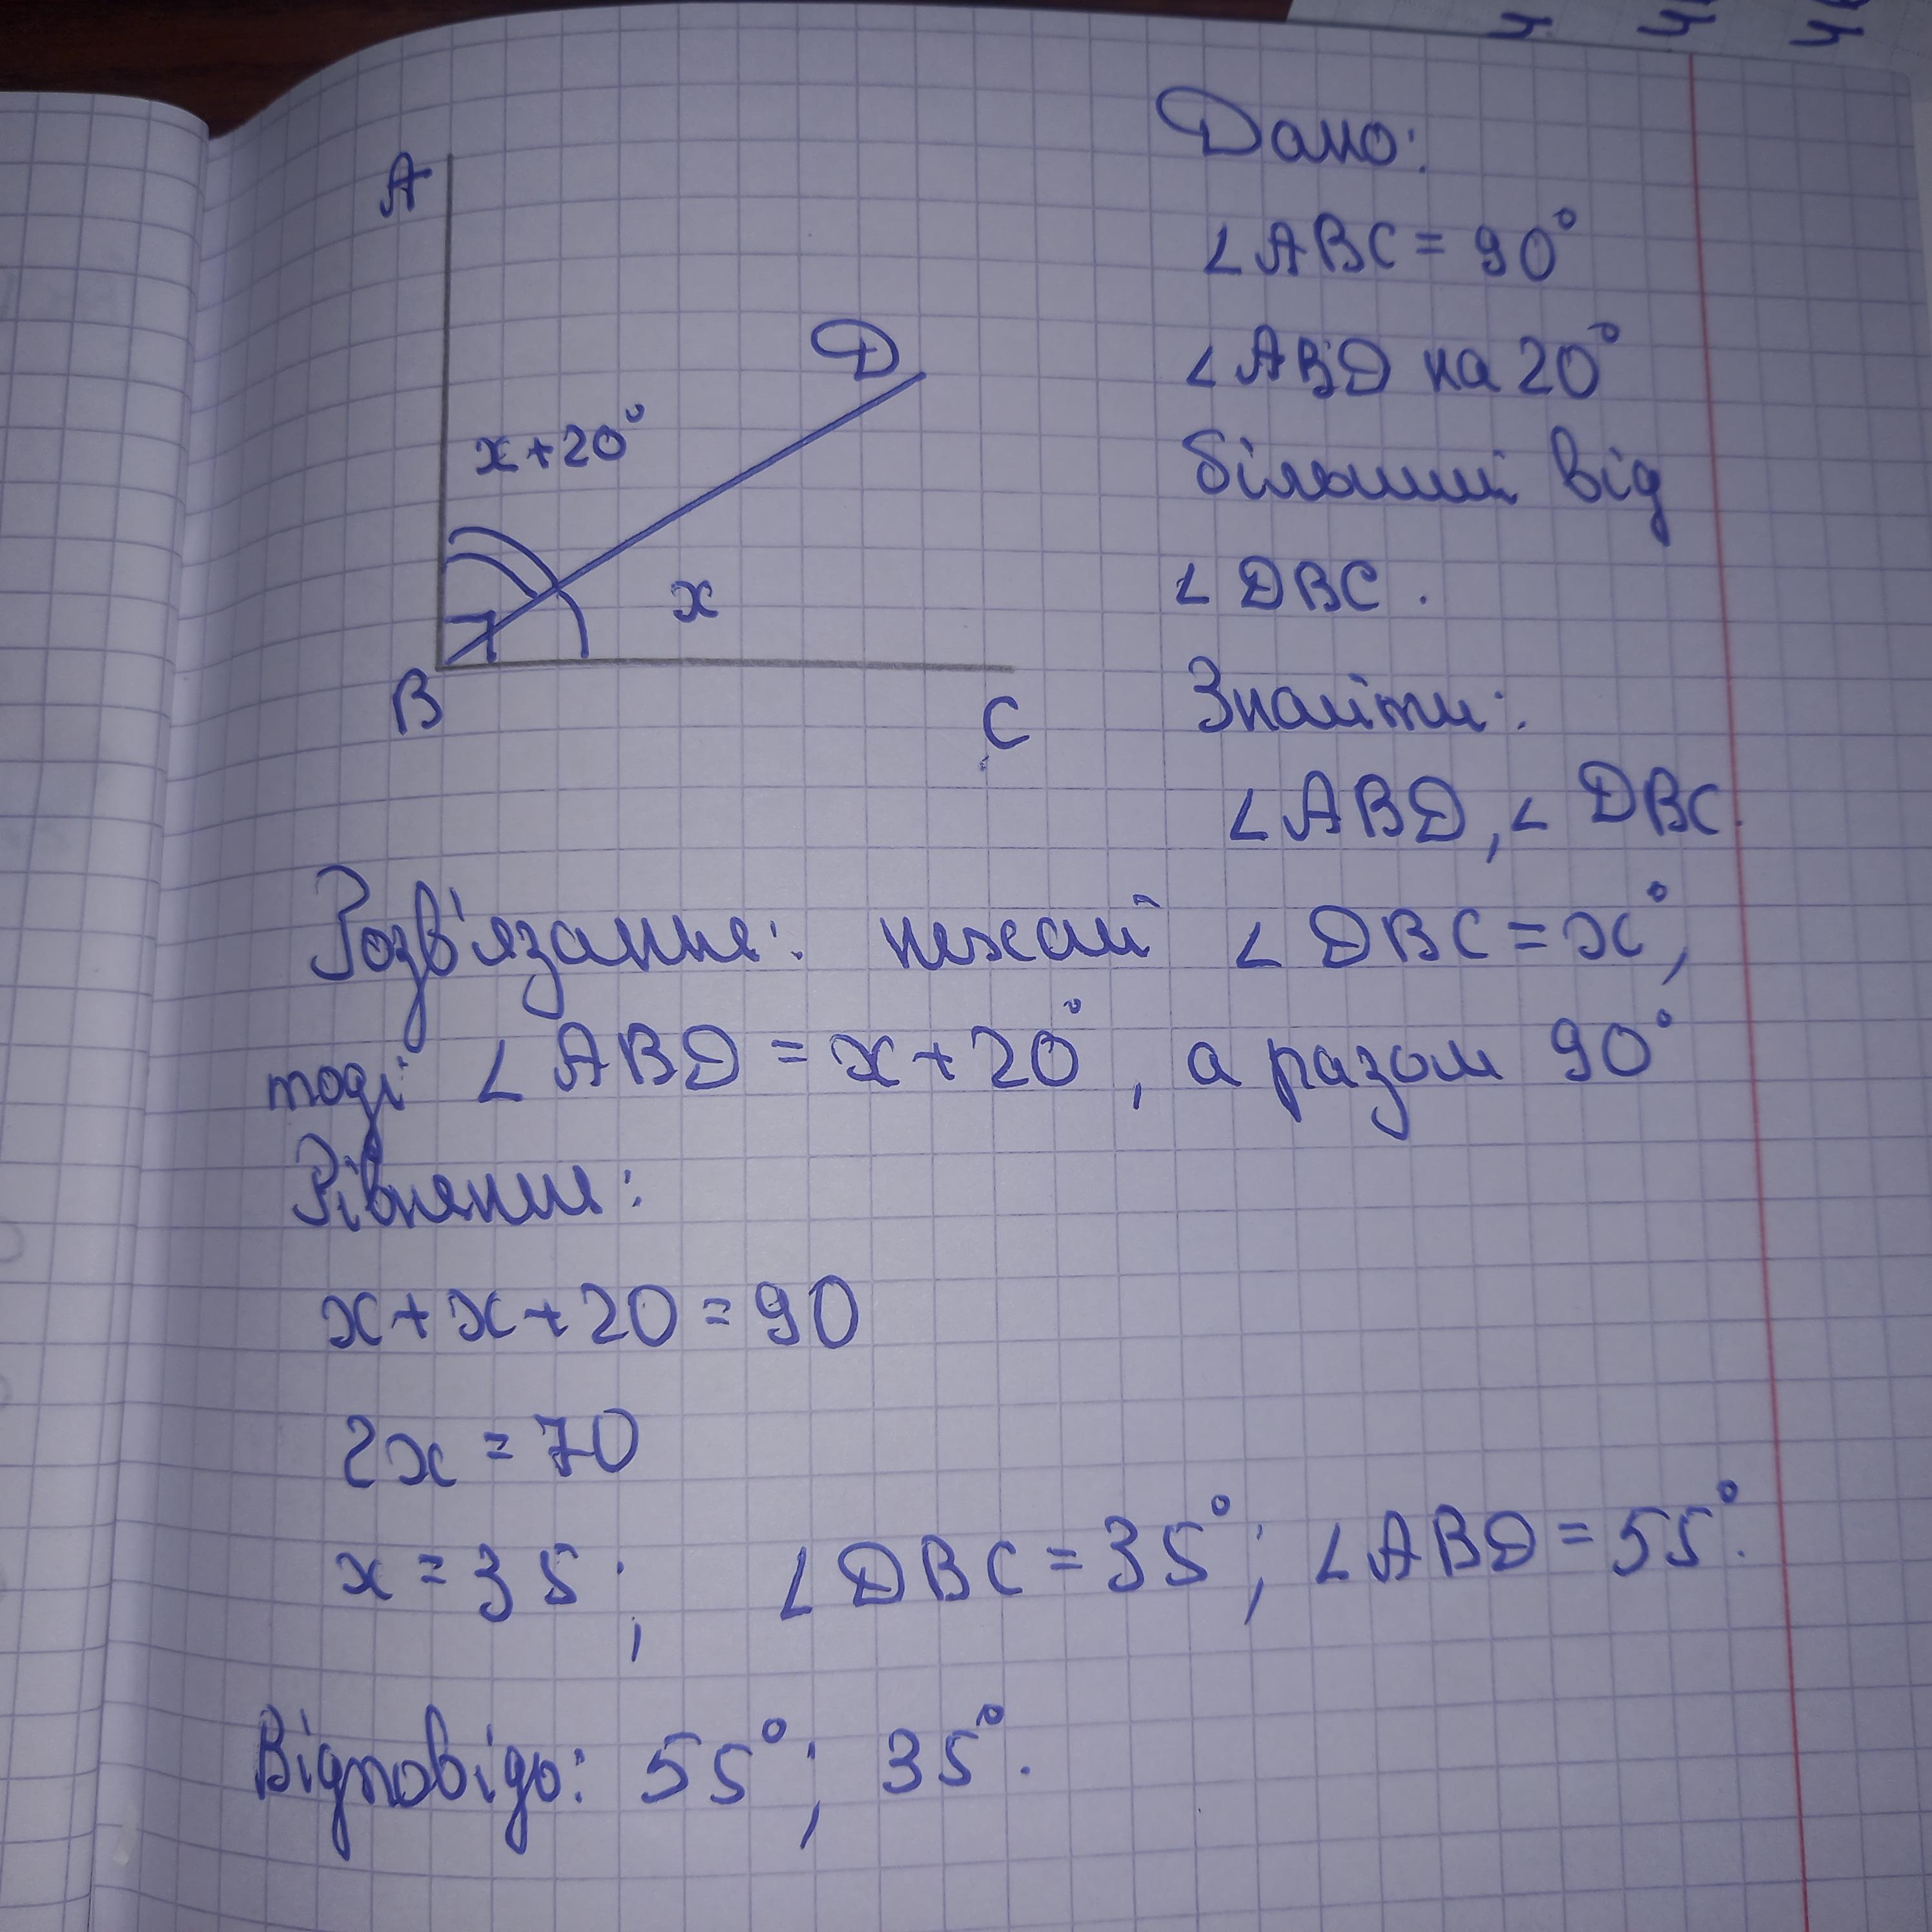 A
D
x+20°
x
B
C
Дано:
∠ABC = 90°
∠ABD на 20°
більший від
∠DBC.
Знайти:
∠ABD, ∠DBC.
Розв'язання: нехай ∠DBC = x°,
тоді ∠ABD = x+20°, а разом 90°
Рівняння:
x+x+20=90
2x = 70
x = 35; ∠DBC = 35°; ∠ABD = 55°.
Відповідь: 55°; 35°.